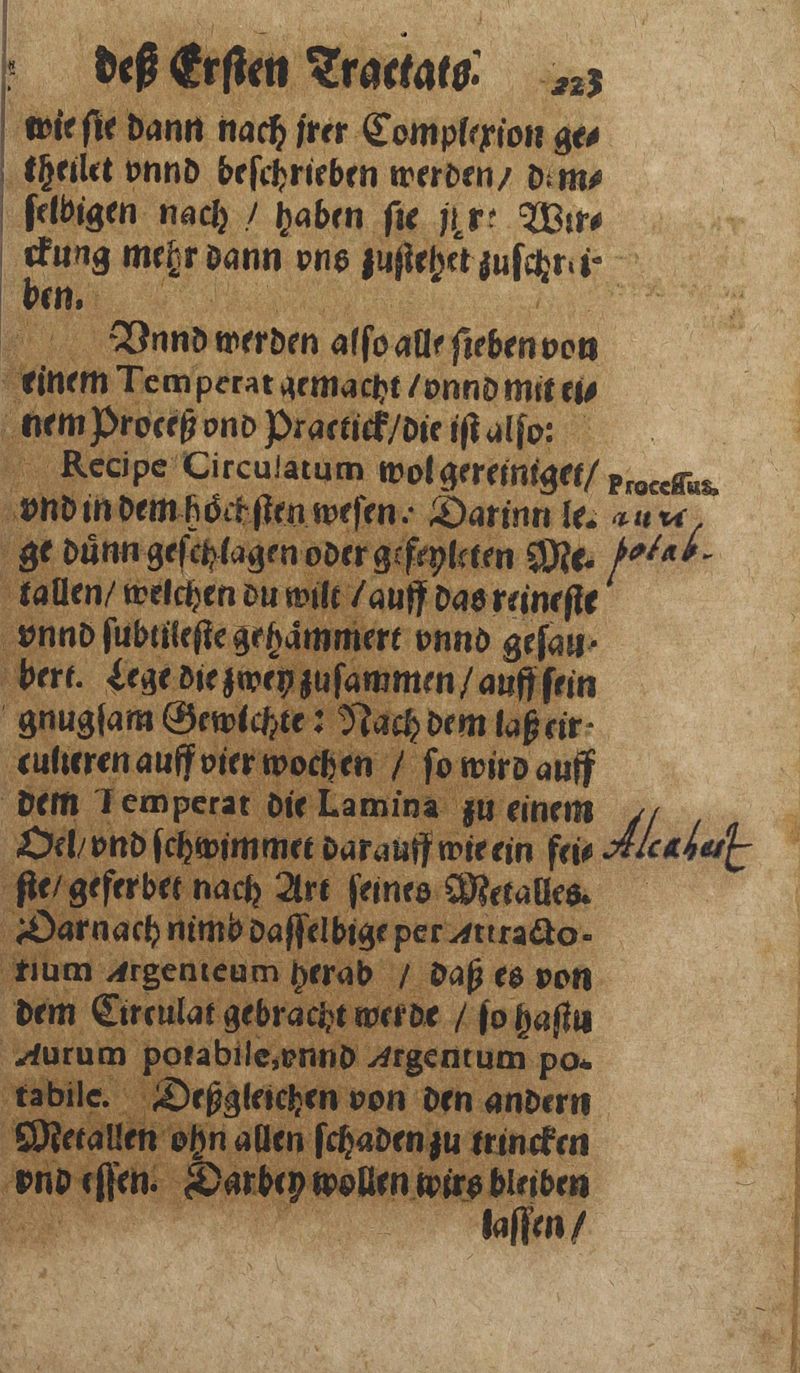 deß Ersten Tractats. 223
wie sie dann nach jrer Complexion ge-
theilet vnnd beschrieben werden / dem-
selbigen nach / haben sie jhre Wir-
ckung mehr dann vns zustehet zuschrei-
ben.
Vnnd werden also alle sieben von
einem Temperat gemacht / vnnd mit ei-
nem Proceß vnd Practick / die ist also:
Recipe Circulatum wol gereiniget /
vnd in dem höchsten wesen. Darinn le-
ge dünn geschlagen oder gefeyleten Me-
tallen / welchen du wilt / auff das reineste
vnnd subtileste gehämmert vnnd gesau-
bert. Lege die zwey zusammen / auff sein
gnugsam Gewichte: Nach dem laß cir-
culieren auff vier wochen / so wird auff
dem Temperat die Lamina zu einem
Oel / vnd schwimmet darauff wie ein feis-
ste / geferbet nach Art seines Metalles.
Darnach nimb dasselbige per Attracto-
rium Argenteum herab / daß es von
dem Circulat gebracht werde / so hastu
Aurum potabile, vnnd Argentum po-
tabile. Deßgleichen von den andern
Metallen ohn allen schaden zu trincken
vnd essen. Darbey wollen wirs bleiben
lassen /
Processus.
auri
potab.
Alcahest